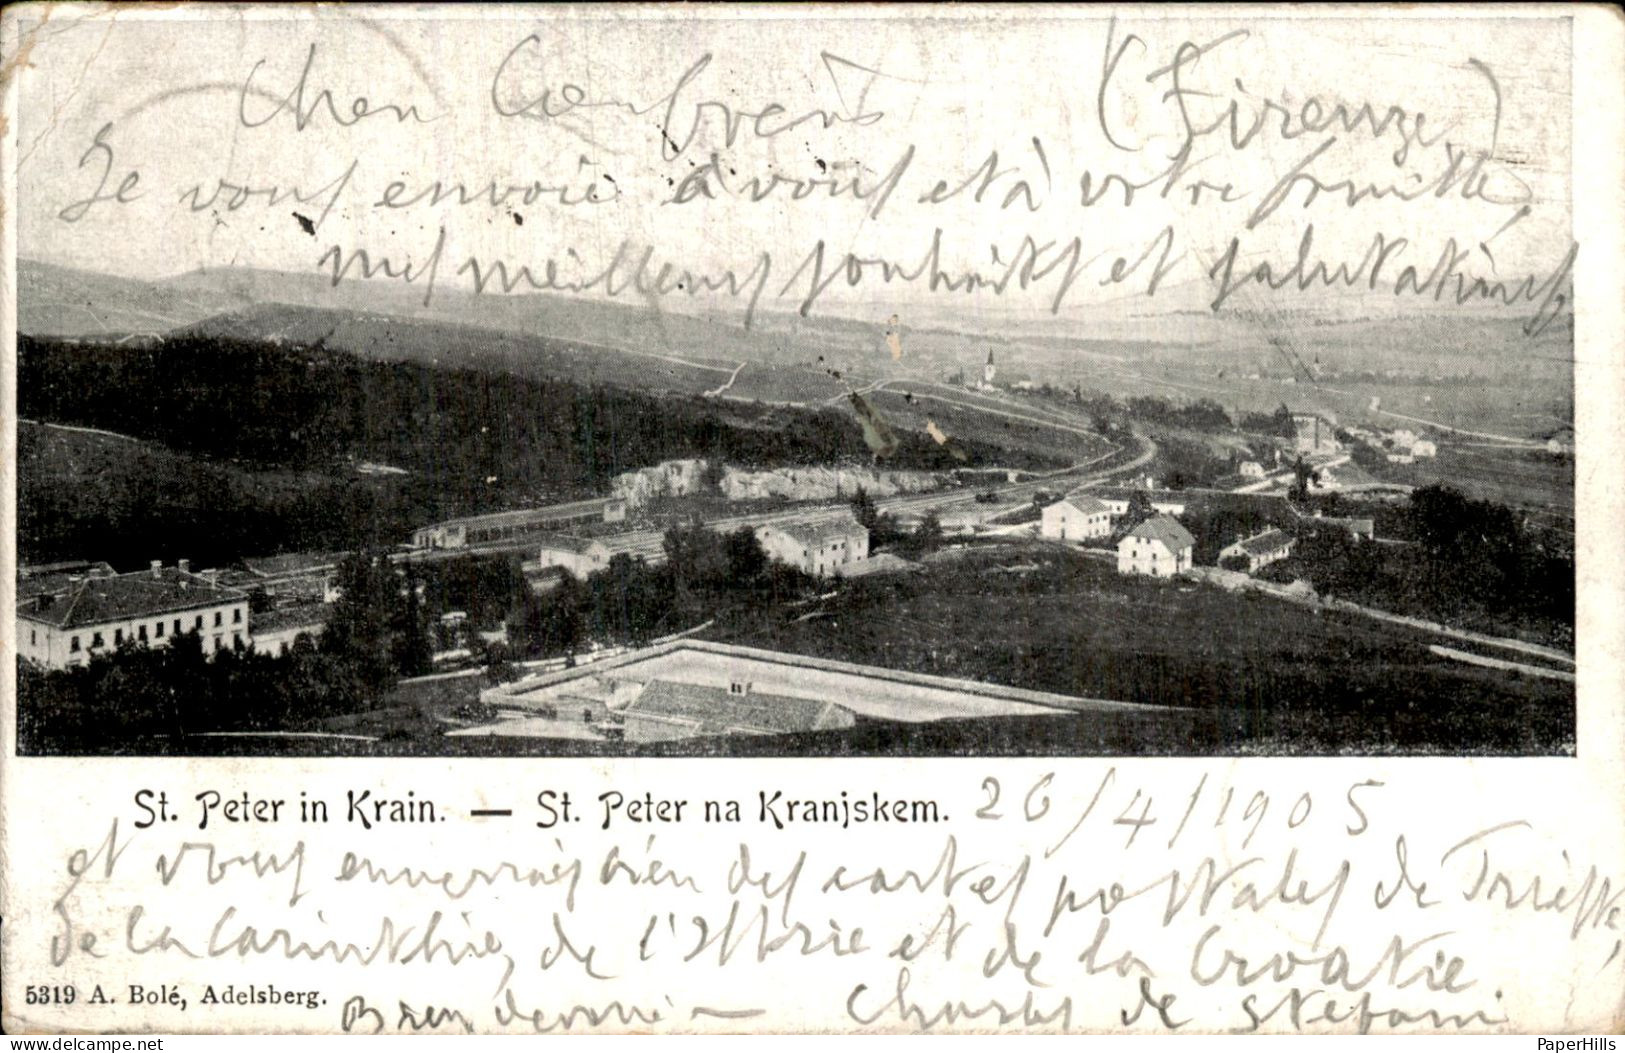 Cher Confrère (Firenze)
Je vous envoie à vous et à votre famille,
mes meilleurs souhaits et salutations,
St. Peter in Krain. — St. Peter na Kranjskem. 26/4/1905
et vous enverrais bien des cartes postales de Trieste,
de la Carinthie, de l'Istrie et de la Croatie.
5319 A. Bolé, Adelsberg.
Charles de Stefani
delcampe.net
PaperHills